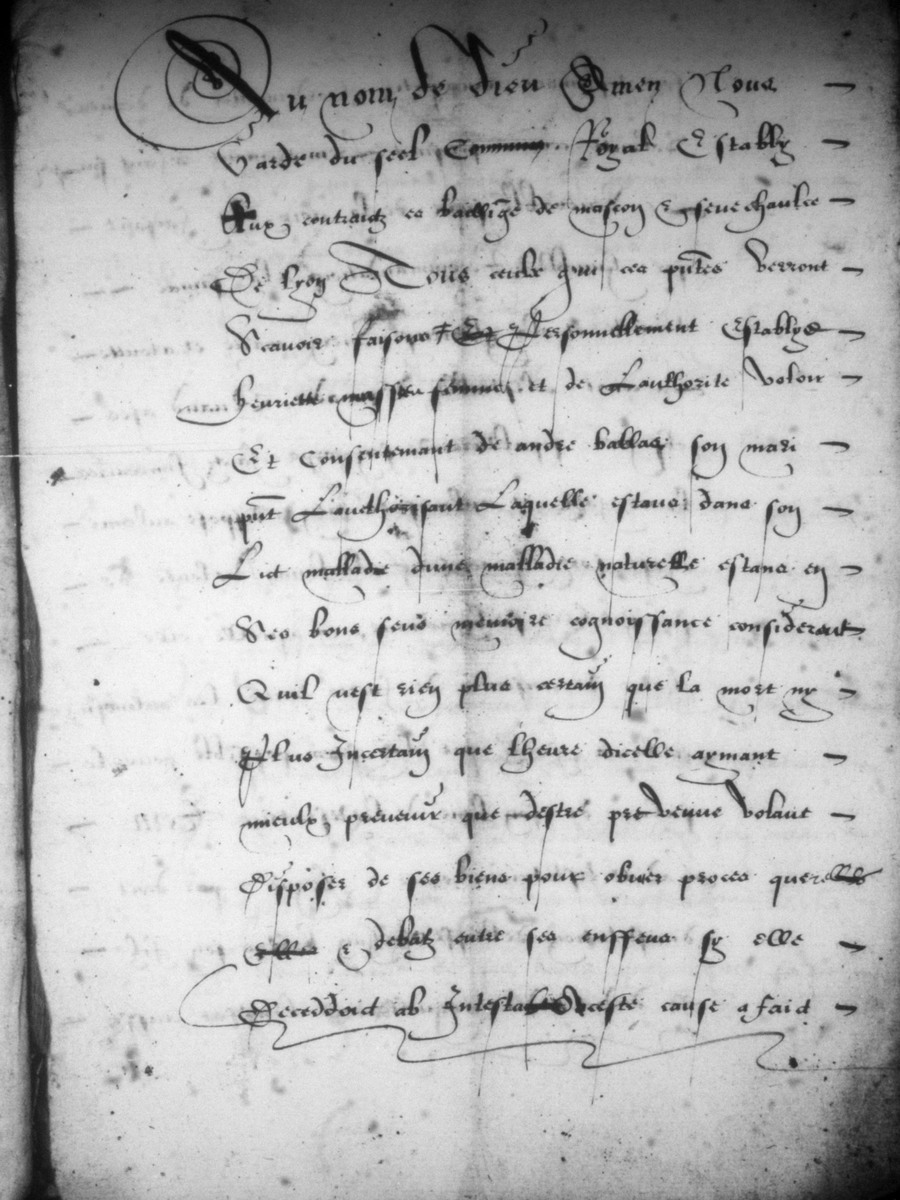 Au nom de dieu Amen Nous
Garde du seel Commun Royal Estably
Aux contractz es bailliage de mascon & seneschaulcee
De lyon A Tous ceulx qui ces pñtes verront
Scavoir faisons Et Personnellement Establye
henriette femme et de Lauthorite voloir
Et Consentement de andre ballas son mari
pñt Laucthorisant Laquelle estant dans son
Lict malladie dune malladie naturelle estans en
Ses bons sens memoire cognoissance considerant
Quil nest rien plus certain que la mort ny
Plus Incertain que lheure dicelle aymant
mieulx prevenir que destre prevenue volant
Disposer de ses biens pour obvier proces querelles
& debatz entre ses enffens sy elle
Deceddoit ab Intestat a ceste cause a faict